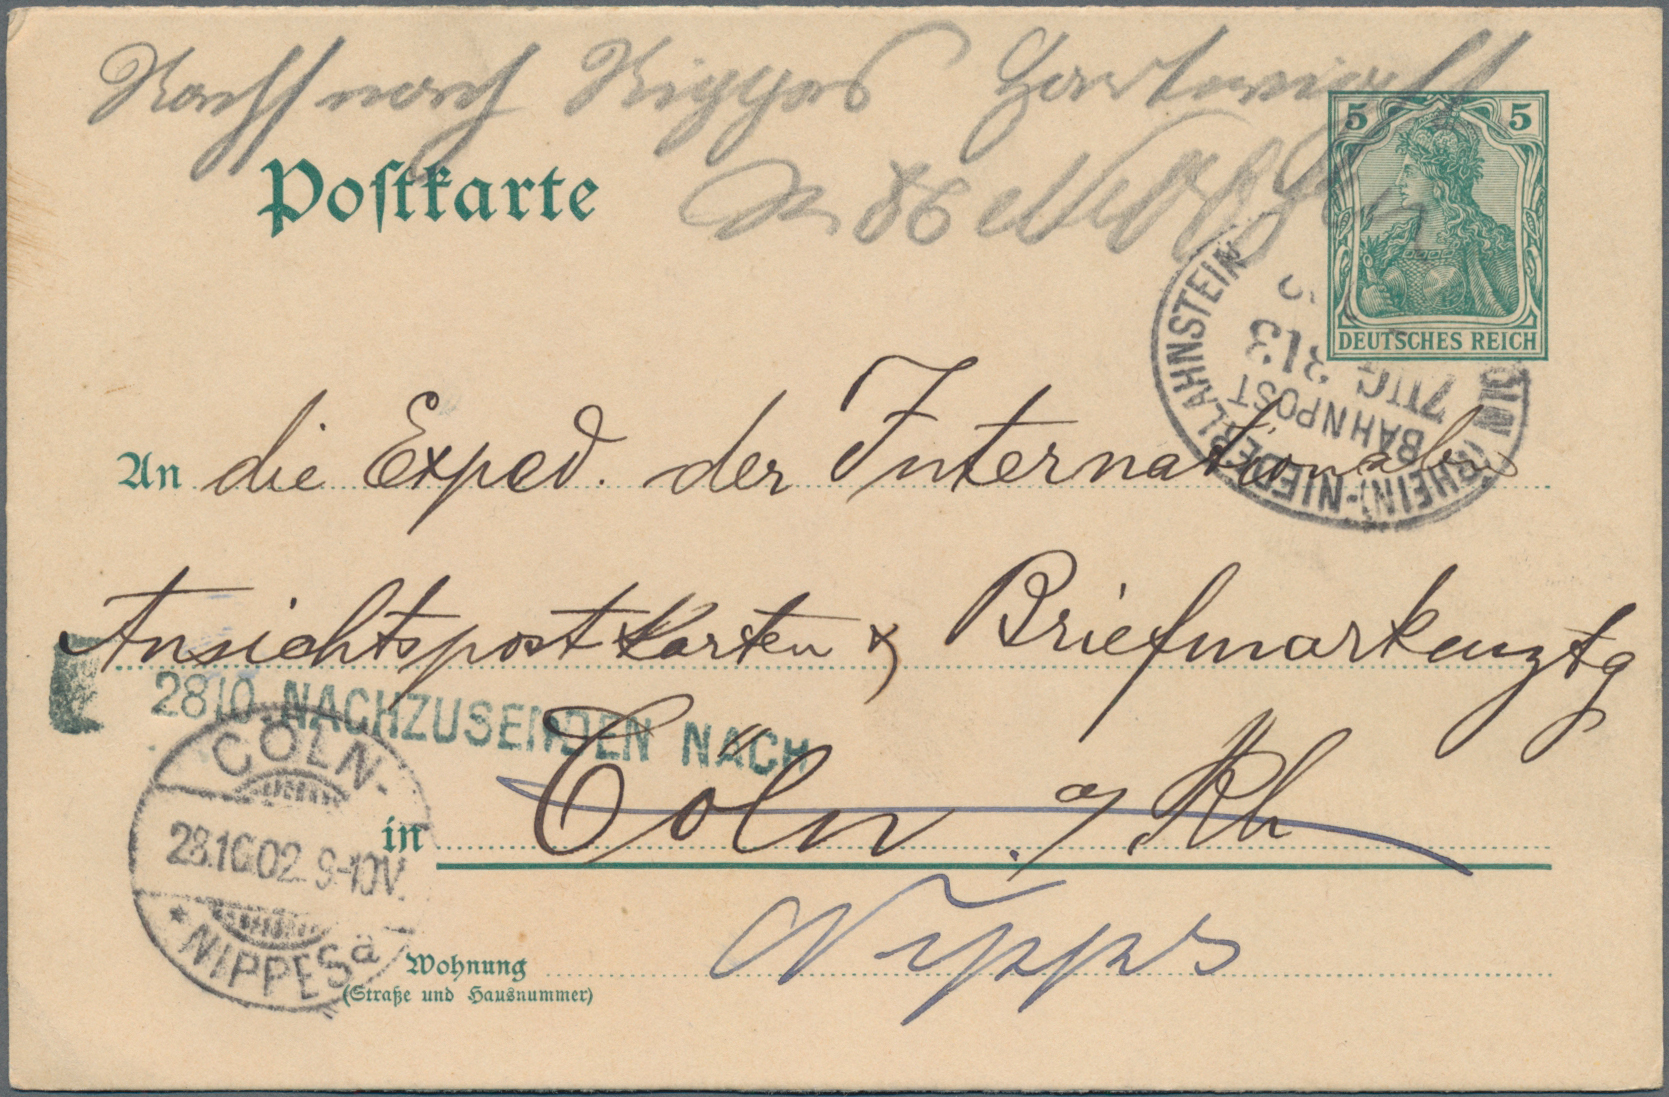 nach Nippes
5 5
Postkarte
N 86
DEUTSCHES REICH
CÖLN (RHEIN)-NIEDERLAHNSTEIN
BAHNPOST
ZUG 313
An die Exped. der Internationalen
Ansichtspostkarten & Briefmarkenztg
2810 NACHZUSENDEN NACH
in Cöln a/Rh
CÖLN-
28.10.02. 9-10V.
* NIPPES a
Nippes
Wohnung
(Straße und Hausnummer)